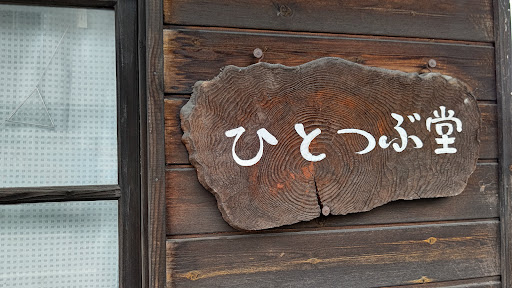 ひとつぶ堂